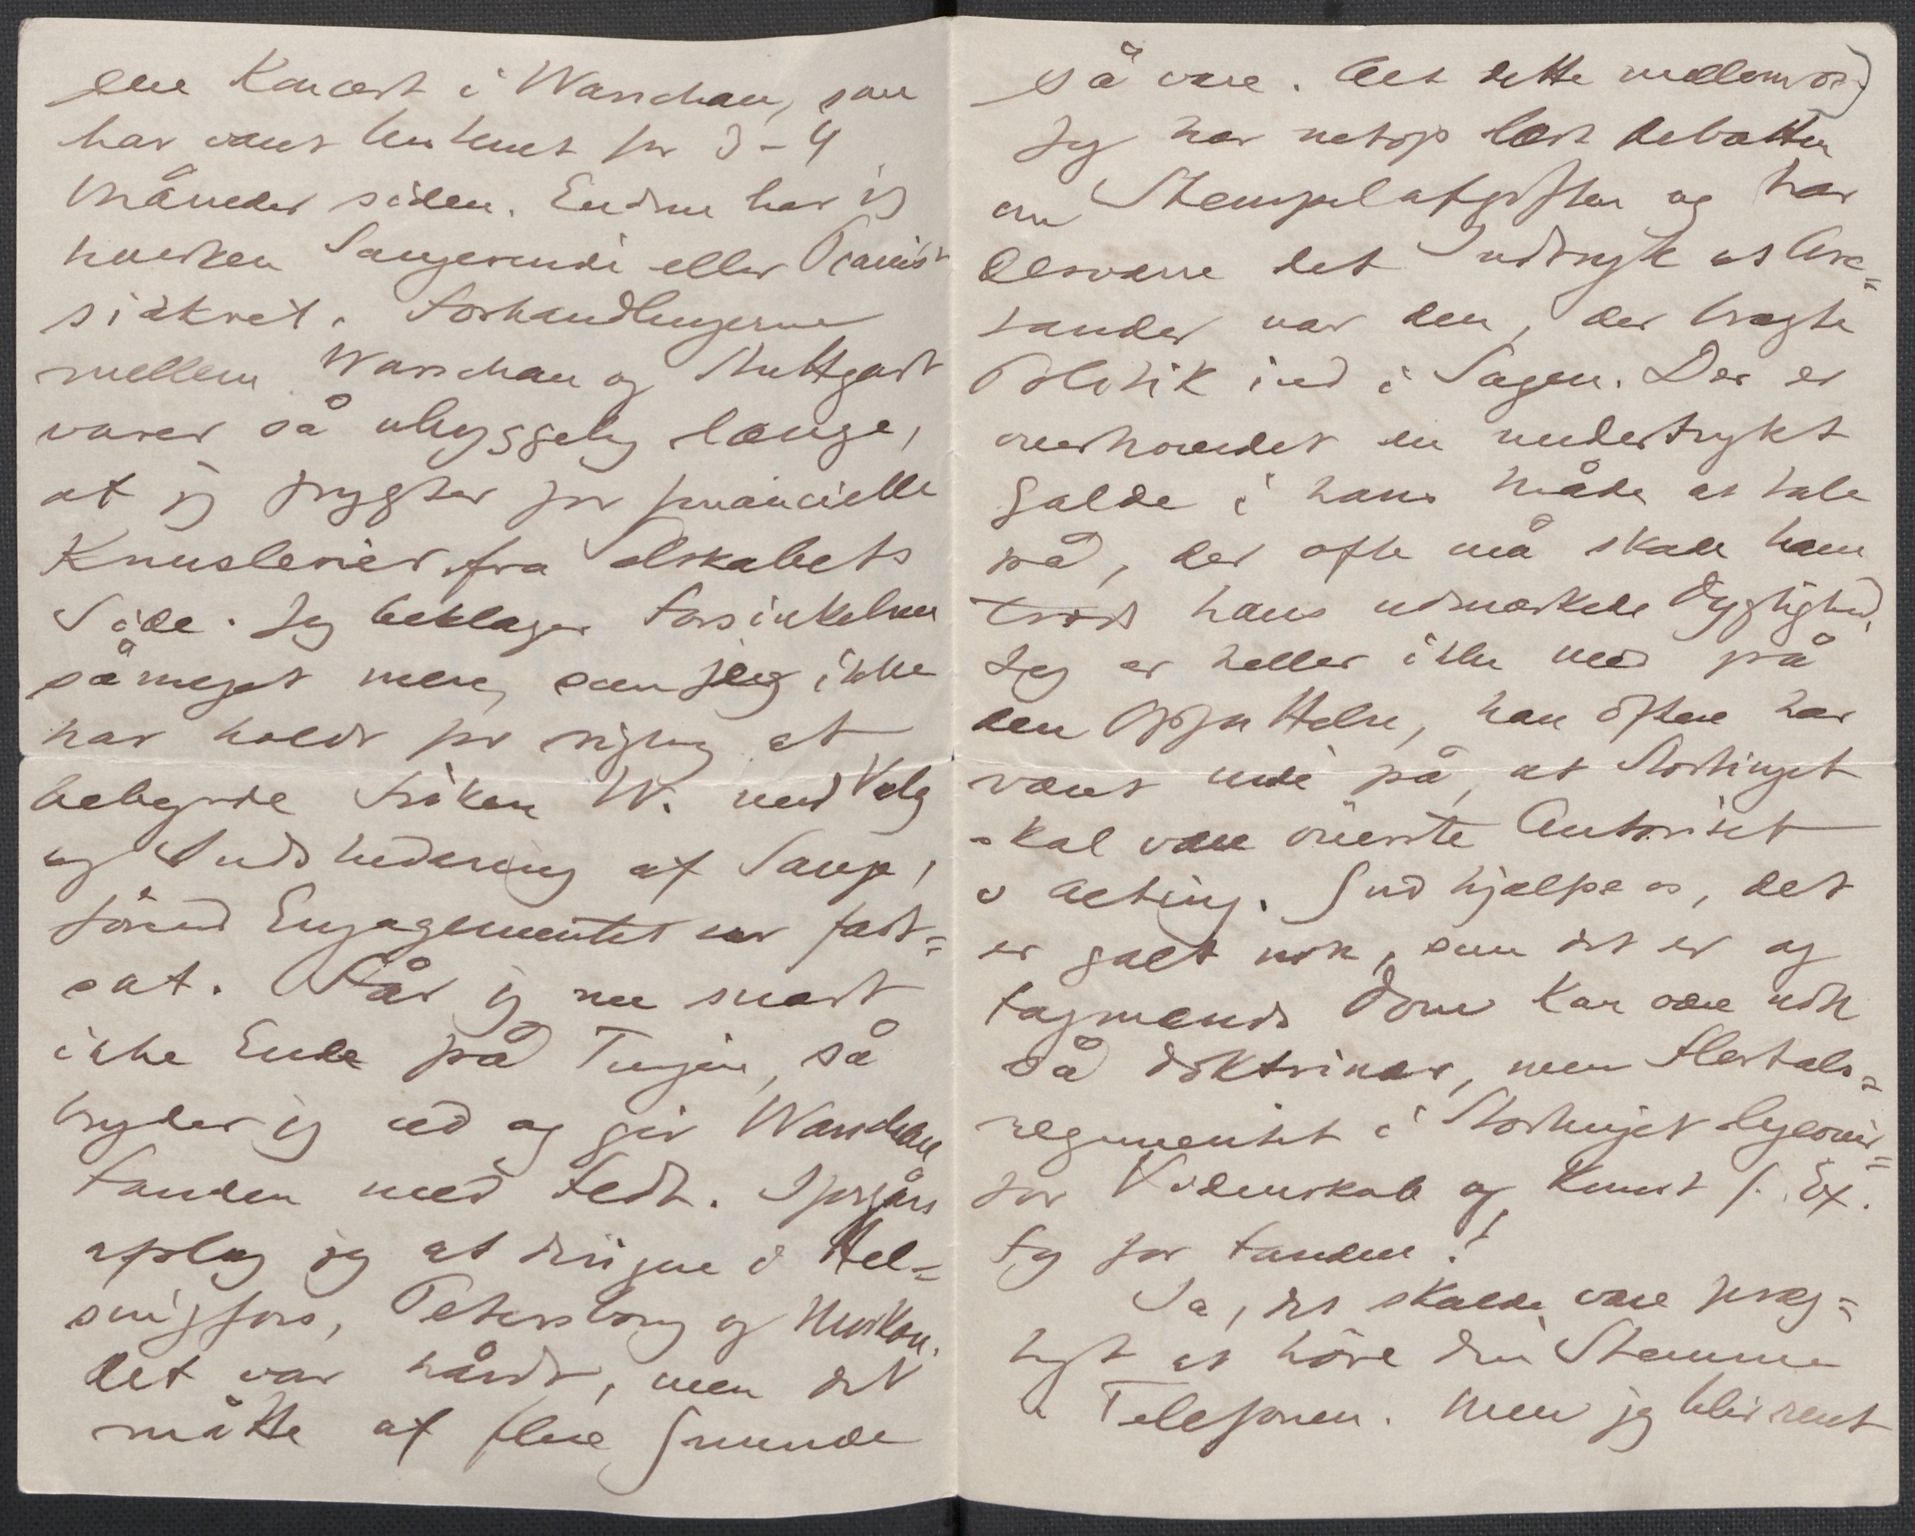 ene Koncert i Warschau, som
har været bestemt for 3-4
Måneder siden. Endnu har jeg
hverken Sangerinde eller Pianist
sikret. Forhandlingerne
mellem Warschau og Stuttgart
varer så uhyggelig længe,
at jeg frygter for financielle
Knuslerier fra Selskabets
Side. Jeg beklager Forsinkelsen
såmeget mere, som jeg ikke
har holdt for rigtig at
bebyrde Fröken W. med Valg
og Indstudering af Sange,
förend Engagementet var fast=
sat. Får jeg nu snart
ikke Ende på Tingene, så
bryder jeg ud og gir Warschau
Fanden med Fedt. Igjår
afslog jeg at dirigere i Hel=
singfors, Petersborg og Moskau.
Det var hårdt, men det
måtte af flere Grunde
så være. (Alt dette mellem os.)
Jeg har netop læst Debatten
om Stempelafgiften og har
desværre det Indtryk at Arc=
tander var den, der bragte
Politik ind i Sagen. Der er
overhovedet en undertrykt
Galde i hans Måde at tale
på, der ofte må skade ham
trods hans udmærkede Dygtighed.
Jeg er heller ikke med på
den Opfattelse, han oftere har
været inde på, at Stortinget
skal være överste Autoritet
i Alting. Gud hjælpe os, det
er galt nok, som det er og
Fagmænds Dom kan være nok
så doktrinær, men Flertals=
regimentet i Stortinget ligeover=
for Videnskab og Kunst f. Ex.
Fy for Fanden!
Ja, det skulde være præg=
tigt at höre din Stemme
i Telefonen. Men jeg blir rent